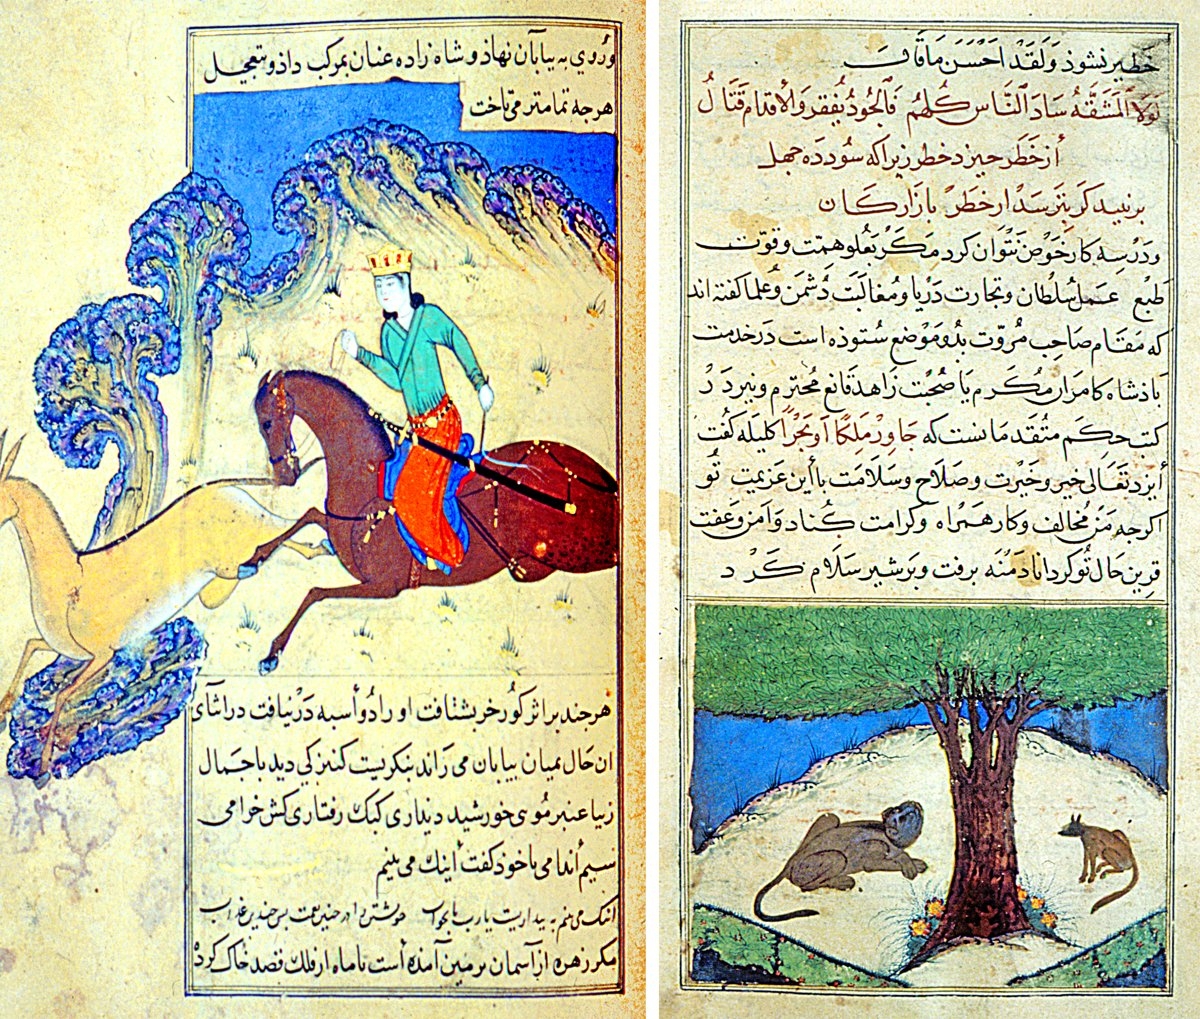 وروی به بیابان نهاذ و شاه زاده عنان بمرکب داذ و بتعجیل
هرجه تمامتر می تاخت
هرجند بر اثر کورخر بشتافت او را دو أسبه در نیافت در اثنآی
ان حال بمیان بیابان می راند بنکریست کنیزکی دید با جمال
زیبا عنبر موی خورشید دیداری کبک رفتاری کش خرامی
نسیم أندامی با خوذ کفت أینک می بینم
اینک می بنم به بیداریست یارب یا بخواب خویشتن را در جنین نعمت بس جندین عذاب
مکر زهره از آسمان بزمین آمده أست تا ماه از فلک قصد خاک کرده
خطیر نشوذ وَلَقَدْ اَحْسَنَ مَا قَالَ
لَوْلَا ٱلْمَشَقَّةُ سَادَ ٱلنَّاسُ كُلُّهُمُ فَٱلْجُودُ يُفْقِرُ وَٱلْاِقْدَامُ قَتَّالُ
أز خَطَر خیزد خطر زیرا که سود ده جهل
بر نبندد کر بترسد از خطر بازارکان
وَدَر سه کار خَوْض نَتْوان کرد مَکَر بعُلو همّت و قوّت
طَبْع عَمل سُلْطان و تجارت دَریا و مُغالَبَت دُشمن و عُلما کفته اند
که مَقَام صَاحِب مُروّت بدُو مَوْضع سُتوذه است دَر خدمت
بَاذشاه کامران مُکَرم یا صُحْبَت زَاهد قانع مُحْترم و نیز دَر
کتب حِکم متُقدمانست که جَاوِرْ مَلِکًا اَوْ بَحْرًا کلیله کفت
أیزد تَعَالی خیر و خَیْرت و صَلَاح و سَلَامت با أین عَزیمت تُو
اکرجه مَن مُخالف و کاره همراه و کرامت کُناد و آمن و عفت
قرین حال تُو کرداناد دمْنَه برفت و بَر شیر سَلَام کَرد